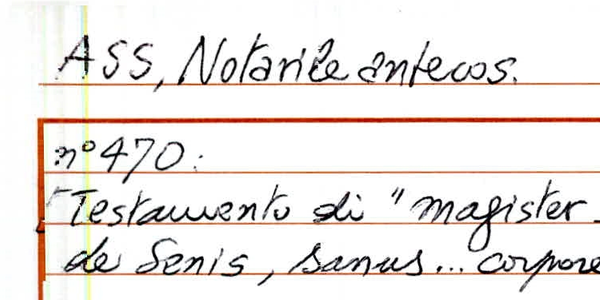 ASS, Notarile antecos.
n° 470:
[Testamento di "magister
de Senis, sanus... corpore